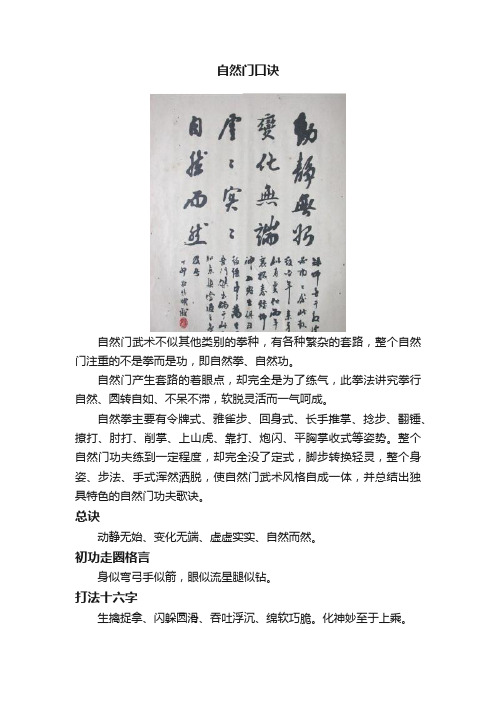 自然门口诀
動靜無始
變化無端
虛〻實〻
自然而然
自然门武术不似其他类别的拳种，有各种繁杂的套路，整个自然
门注重的不是拳而是功，即自然拳、自然功。
自然门产生套路的着眼点，却完全是为了练气，此拳法讲究拳行
自然、圆转自如、不呆不滞，软脱灵活而一气呵成。
自然拳主要有令牌式、雅雀步、回身式、长手推掌、捻步、翻锤、
撩打、肘打、削掌、上山虎、靠打、炮闪、平胸掌收式等姿势。整个
自然门功夫练到一定程度，却完全没了定式，脚步转换轻灵，整个身
姿、步法、手式浑然洒脱，使自然门武术风格自成一体，并总结出独
具特色的自然门功夫歌诀。
总诀
动静无始、变化无端、虚虚实实、自然而然。
初功走圈格言
身似弯弓手似箭，眼似流星腿似钻。
打法十六字
生擒捉拿、闪躲圆滑、吞吐浮沉、绵软巧脆。化神妙至于上乘。